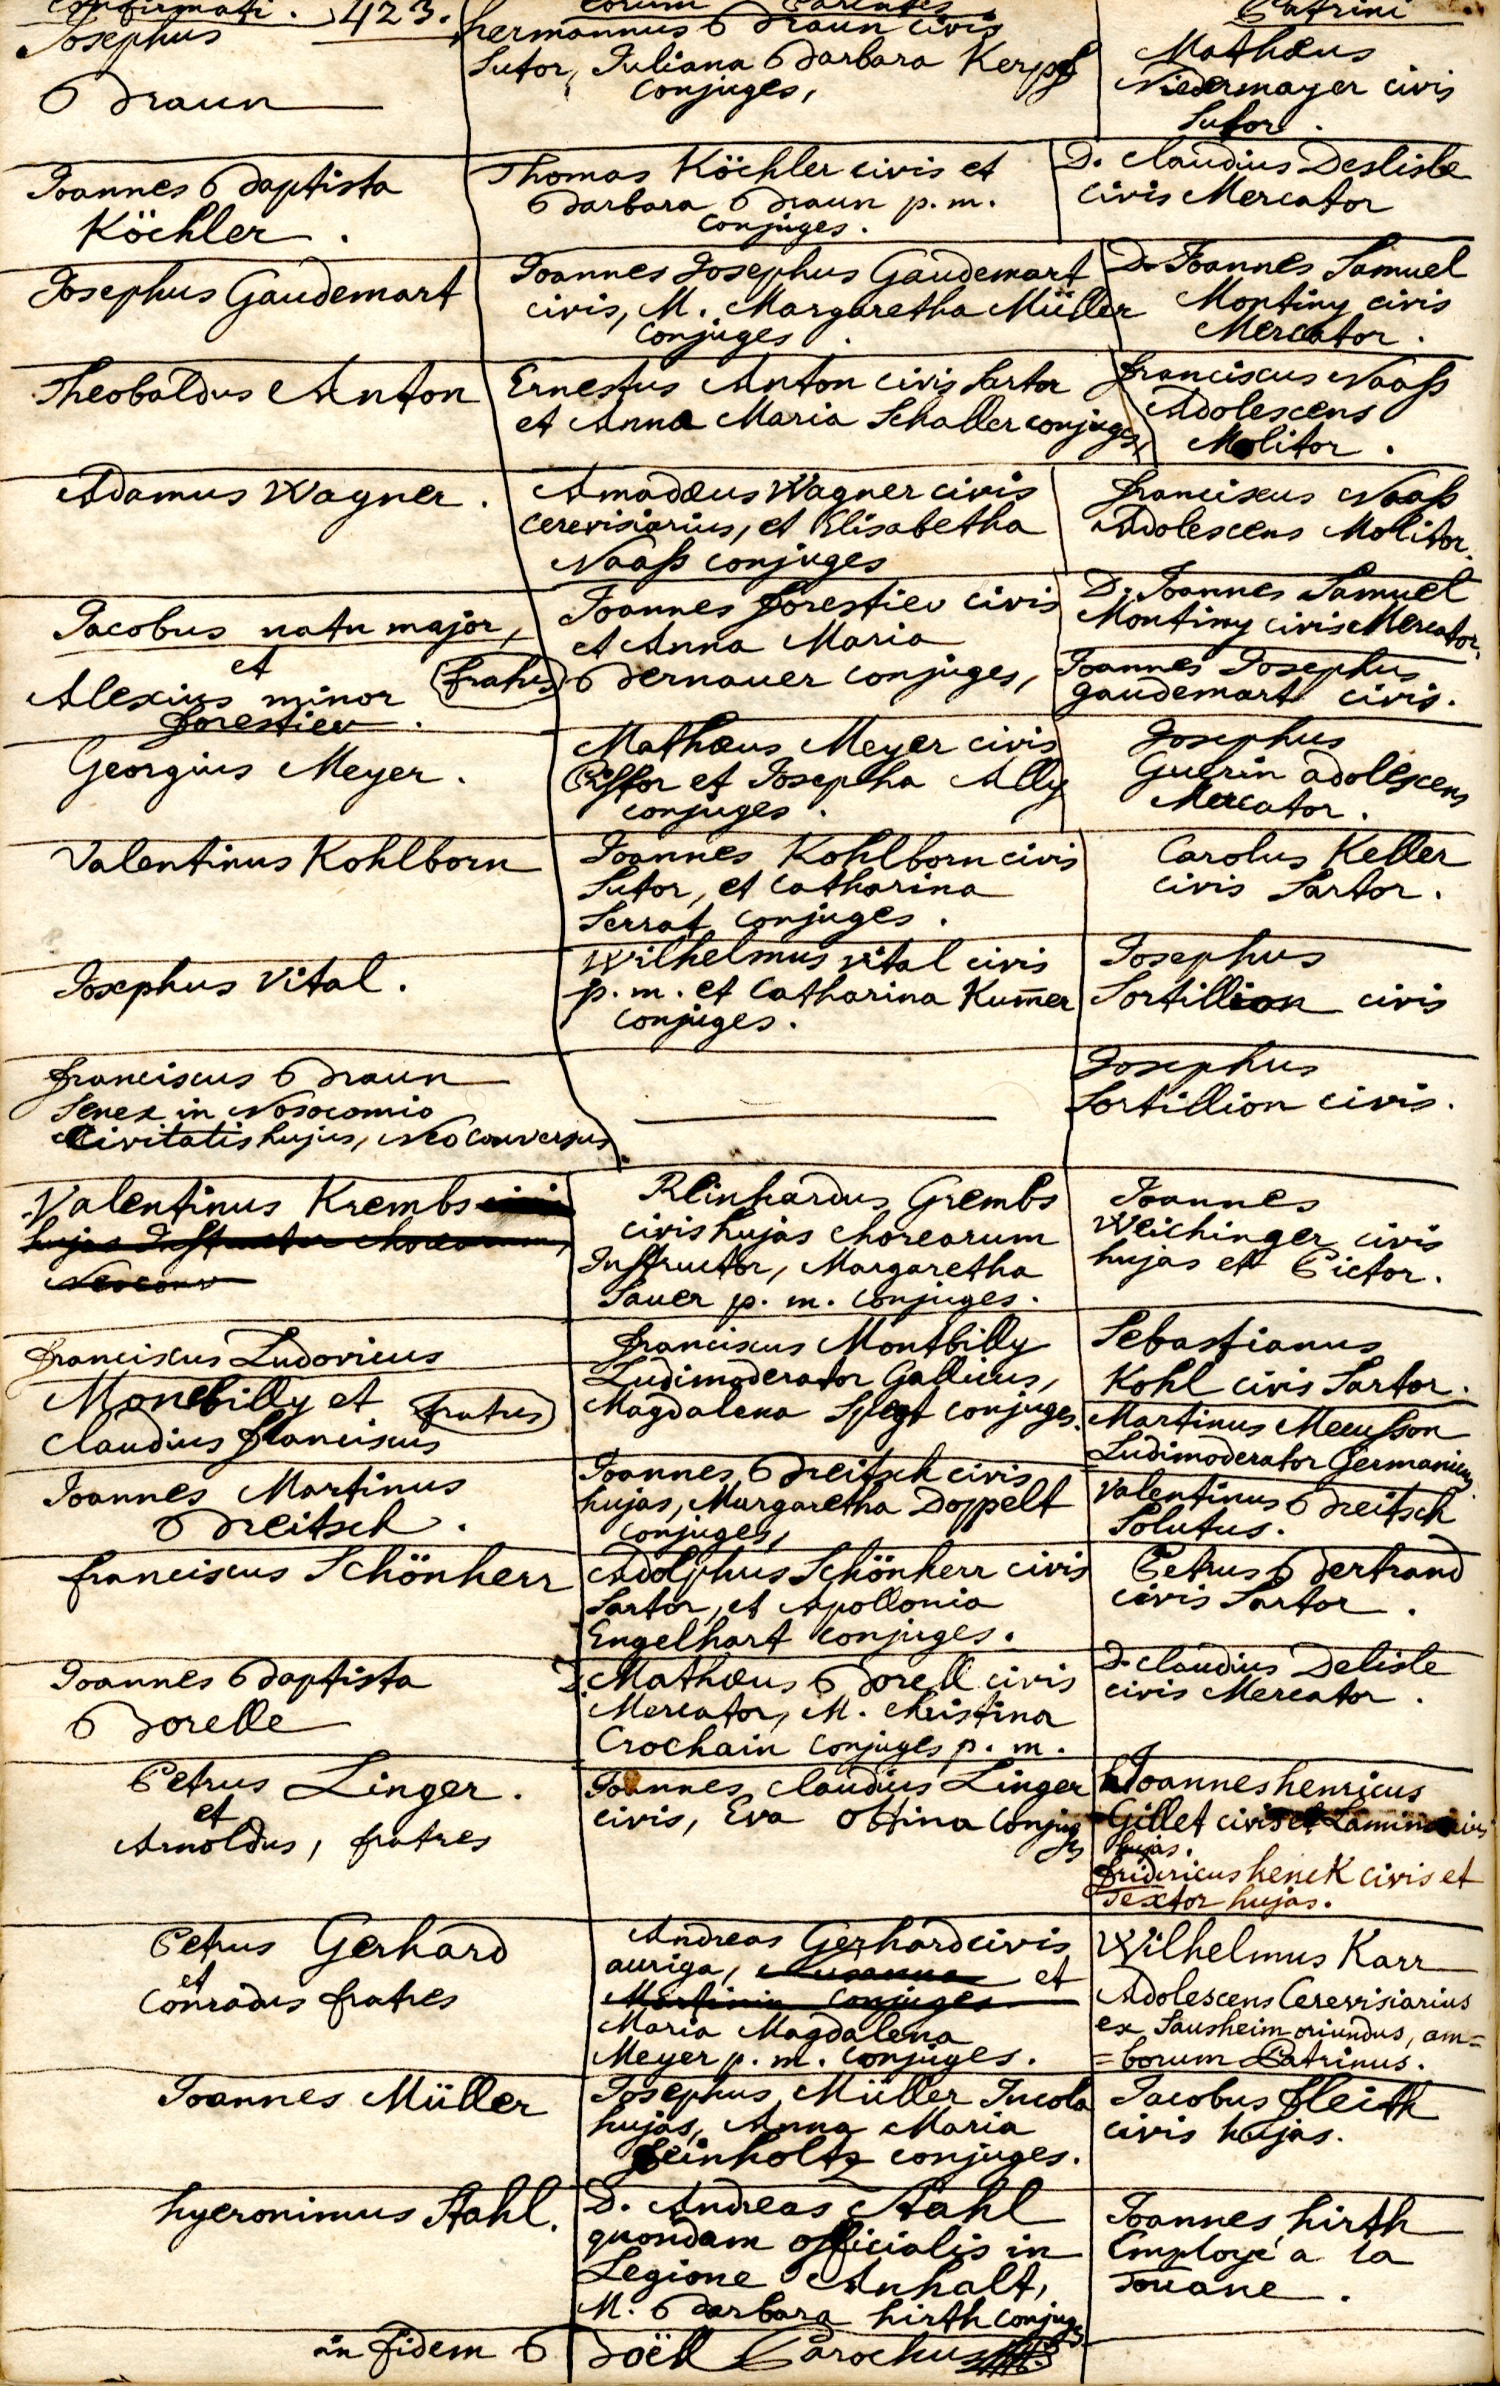 Confirmati. 423. eorum Parentes Patrini
Josephus
Braun
hermannus Braun civis
Sutor, Juliana Barbara Kerpf
conjuges,
Mathæus
Niedermayer civis
Sutor.
Joannes Baptista
Köchler.
Thomas Köchler civis et
Barbara Braun p. m.
conjuges.
D. Claudius Deslisle
civis Mercator
Josephus Gaudemart
Joannes Josephus Gaudemart
civis, M. Margaretha Müller
conjuges.
D. Joannes Samuel
Montiny civis
Mercator.
Theobaldus Anton
Ernestus Anton civis Sartor
et Anna Maria Schaller conjuges,
franciscus Naaß
Adolescens
Molitor.
Adamus Wagner.
Amadæus Wagner civis
cerevisiarius, et Elisabetha
Naaß conjuges
franciscus Naaß
Adolescens Molitor.
Jacobus natu major,
et
Alexius minor fratres
forestier.
Joannes forestier civis
et Anna Maria
Bernauer conjuges,
D. Joannes Samuel
Montiny civis Mercator.
Joannes Josephus
gaudemart civis.
Georgius Meyer.
Mathæus Meyer civis
Pistor et Josepha Ally
conjuges.
Josephus
Guerin adolescens
Mercator.
Valentinus Kohlborn
Joannes Kohlborn civis
Sutor, et Catharina
Serrat conjuges.
Carolus Keller
civis Sartor.
Josephus Vital.
Wilhelmus vital civis
p. m. et Catharina Kum̄er
conjuges.
Josephus
Sortillion civis
franciscus Braun
Senex in Nosocomio
Civitatis hujus, Neoconversus
Josephus
Sortillion civis.
Valentinus Krembs civis
hujas Instructor chorearum,
Neoconv
Reinhardus Grembs
civis hujas chorearum
Instructor, Margaretha
Sauer p. m. conjuges.
Joannes
Weichinger civis
hujas et Pictor.
franciscus Ludovicus
Montbilly et fratres
Claudius franciscus
franciscus Montbilly
Ludimoderator Gallicus,
Magdalena Spegt conjuges.
Sebastianus
Kohl civis Sartor.
Martinus Meeusson
Ludimoderator Germanicus
Joannes Martinus
Breitsch.
Joannes Breitsch civis
hujas, Margaretha Doppelt
conjuges,
Valentinus Breitsch
Solutus.
franciscus Schönherr
Adolphus Schönherr civis
Sartor, et Apollonia
Engelhart conjuges.
Petrus Bertrand
civis Sartor.
Joannes Baptista
Borelle
D. Mathæus Borell civis
Mercator, M. Christina
Crochain conjuges p. m.
D. Claudius Delisle
civis Mercator.
Petrus Linger.
et
Arnoldus, fratres
Joannes Claudius Linger
civis, Eva Ottina conjuges
Joannes henricus
Gillet civis et Laminarius
hujas.
fridericus henck civis et
Textor hujas.
Petrus Gerhard
et
Conradus fratres
Andreas Gerhard civis
auriga, Susanna et
Martinin conjuges
Maria Magdalena
Meyer p. m. conjuges.
Wilhelmus Karr
Adolescens Cerevisiarius
ex Sausheim oriundus, am=
=borum Patrinus.
Joannes Müller
Josephus Müller Incola
hujas, Anna Maria
feinholtz conjuges.
Jacobus fleith
civis hujas.
hyeronimus Stahl.
D. Andreas Stahl
quondam officialis in
Legione Anhalt,
M. Barbara hirth conjuges
Joannes hirth
Employé a la
Douane.
in fidem Boëll Parochus